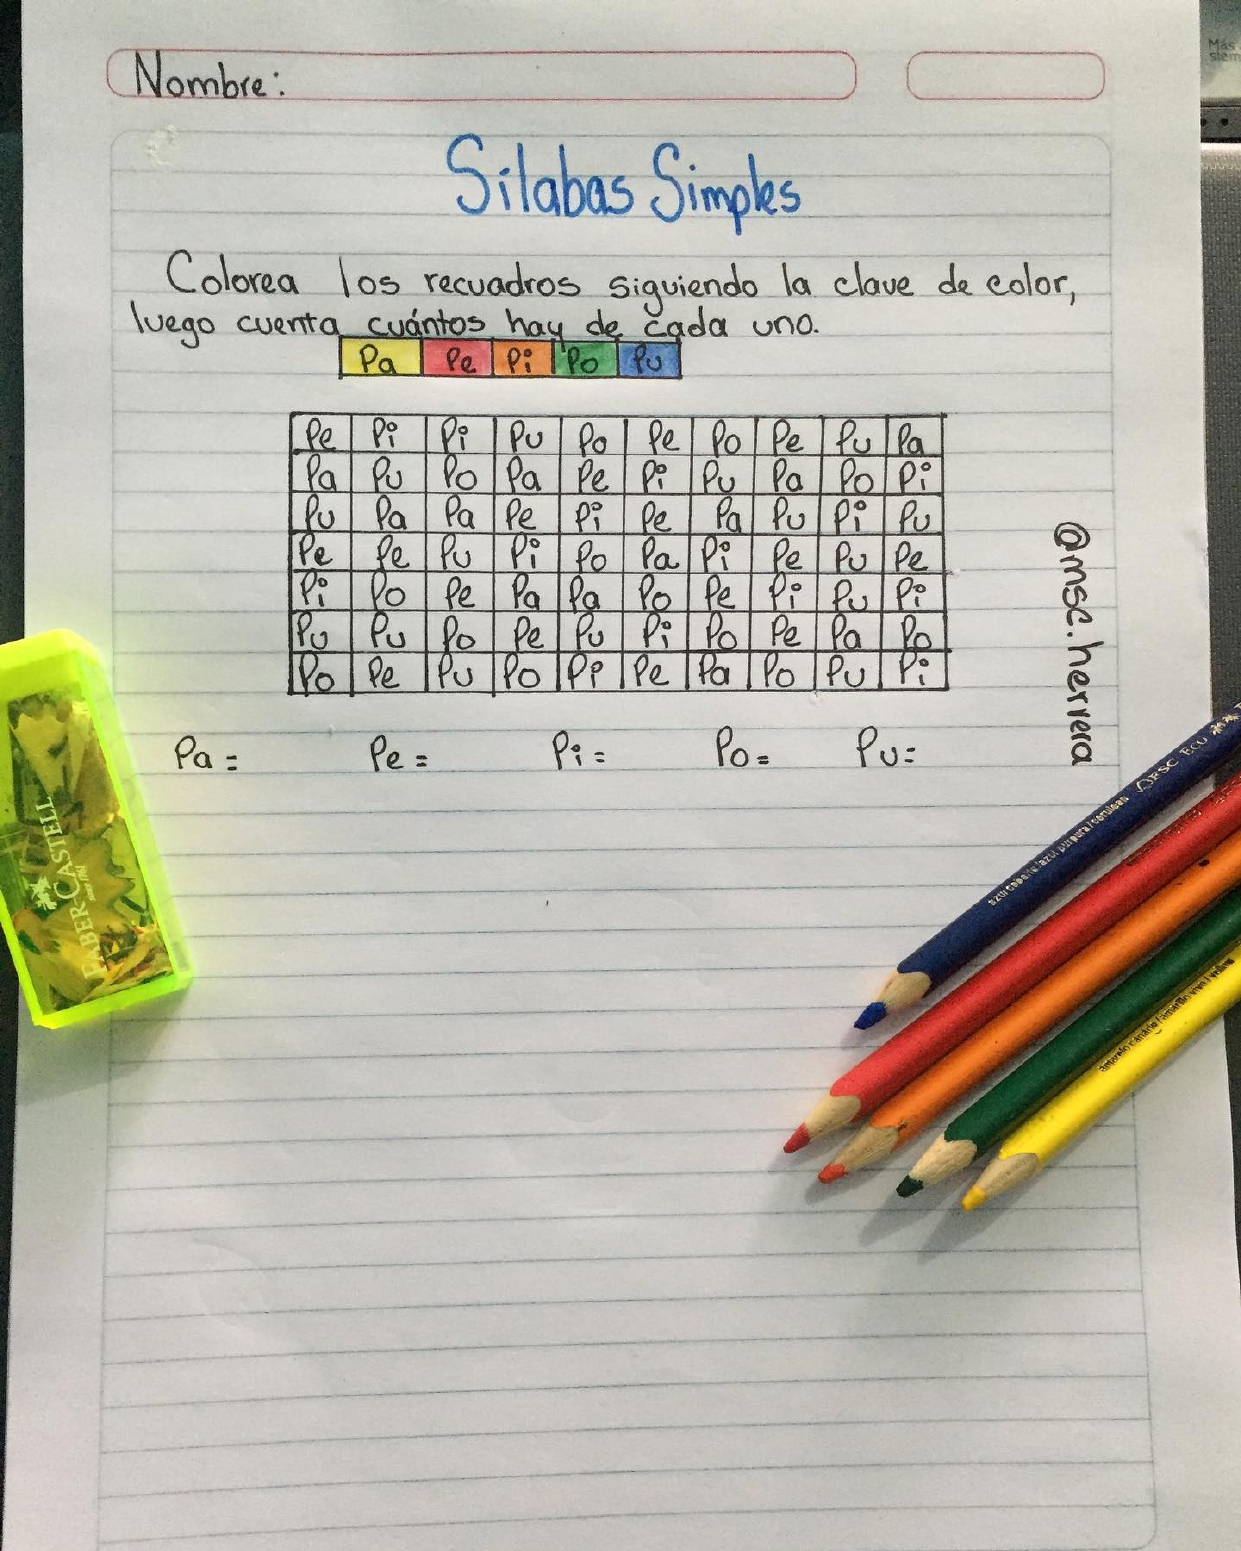 Nombre:
Silabas Simples
Colorea los recuadros siguiendo la clave de color,
luego cuenta cuántos hay de cada uno.
Pa Pe Pi Po Pu
Pe Pi Pi Pu Po Pe Po Pe Pu Pa
Pa Pu Po Pa Pe Pi Pu Pa Po Pi
Pu Pa Pa Pe Pi Pe Pa Pu Pi Pu
Pe Pe Pu Pi Po Pa Pi Pe Pu Pe
Pi Po Pe Pa Pa Po Pe Pi Pu Pi
Pu Pu Po Pe Pu Pi Po Pe Pa Po
Po Pe Pu Po Pi Pe Pa Po Pu Pi
Pa = Pe = Pi = Po = Pu =
@msc.herrera
FABER-CASTELL
FSC Eco